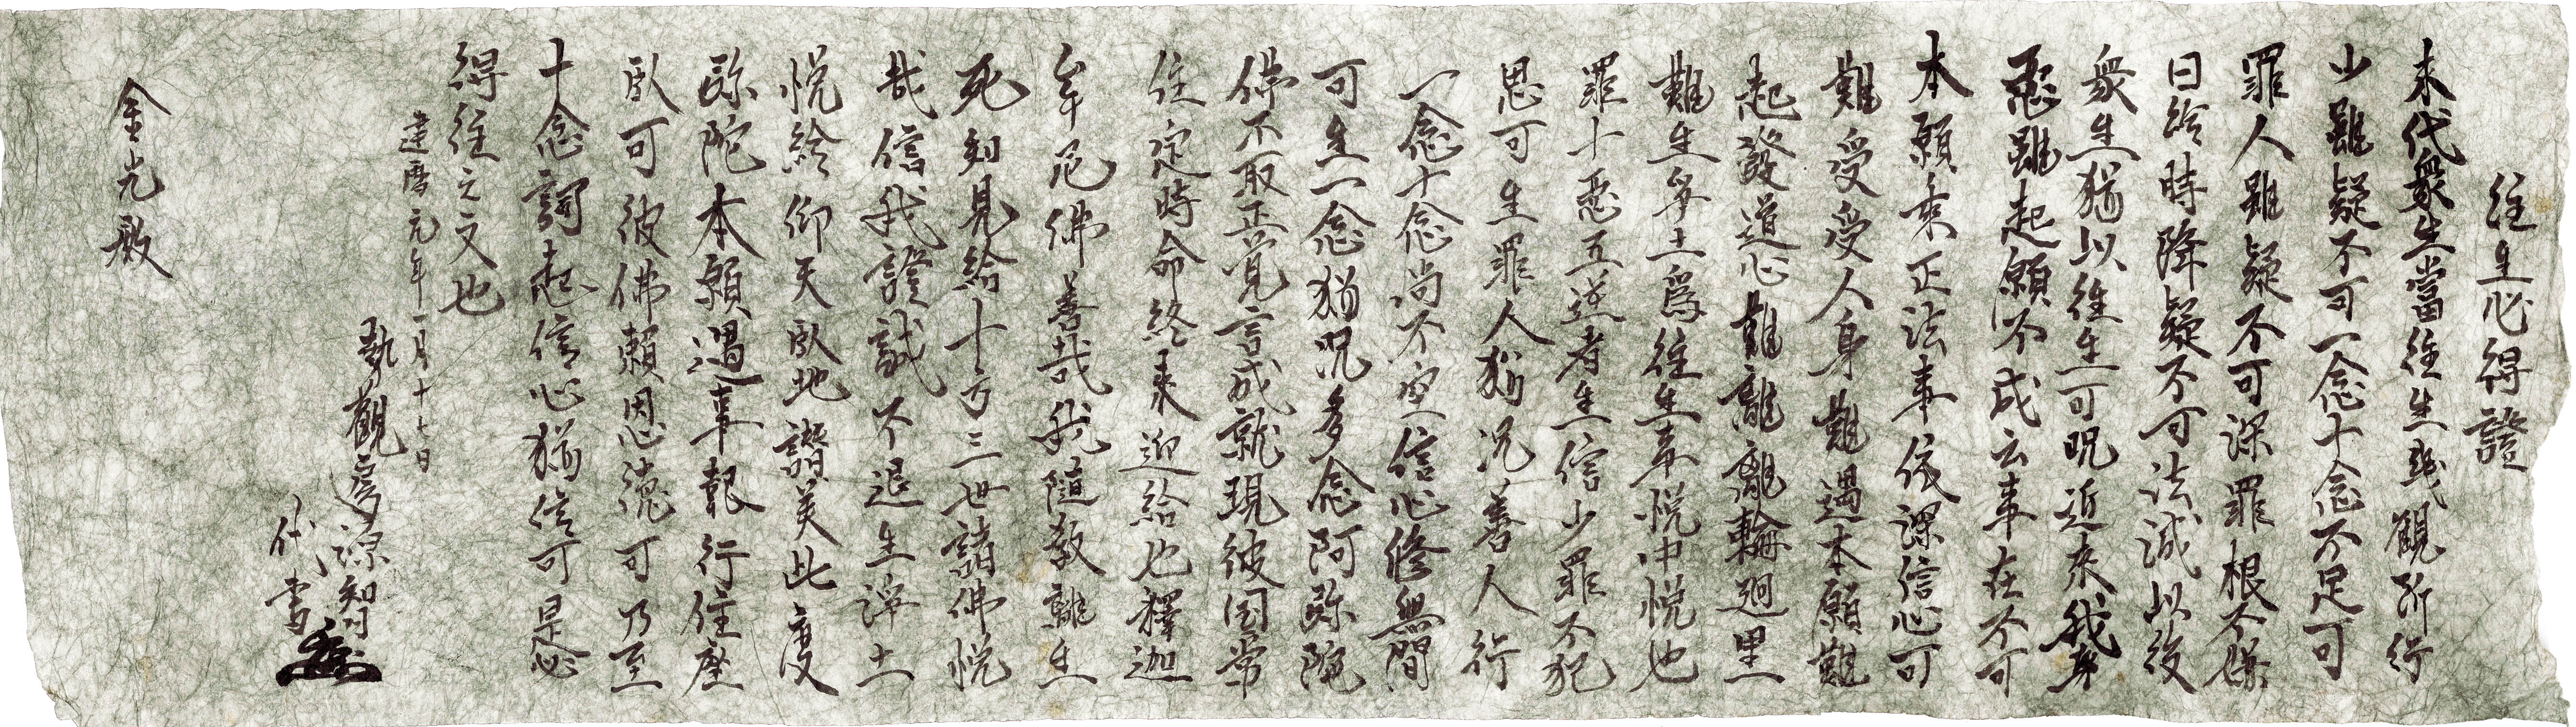 往生必得證
末代衆生當往生我觀所行
少雖疑不可一念十念不足可
罪人雖疑不可深罪根不嫌
曰給時降疑不可法滅以後
衆生猶以往生可況近來我身
惡雖起願不成云事在不可
本願乘正法事依深信心可
難受受人身難遇本願難
起發道心難離輪廻里
難生爭土爲往生事悦中悦也
罪十惡五逆者生信少罪不犯
思可生罪人猶況善人行
一念十念尚不空信心修無間
可生一念猶況多念阿弥陀
佛不取正覚言成就現彼国常
住定時命終来迎給也釋迦
牟尼佛善哉我隨教離生
死知見給十方三世諸佛悦
哉信我證誠不退生浄土
悦給仰天臥地讃美此度
弥陀本願遇事報行住座
臥可彼佛頼恩徳可乃至
十念詞起信心猶信可是必
得往之文也
建暦元年一月十七日
勢觀房源智
代書
金光殿